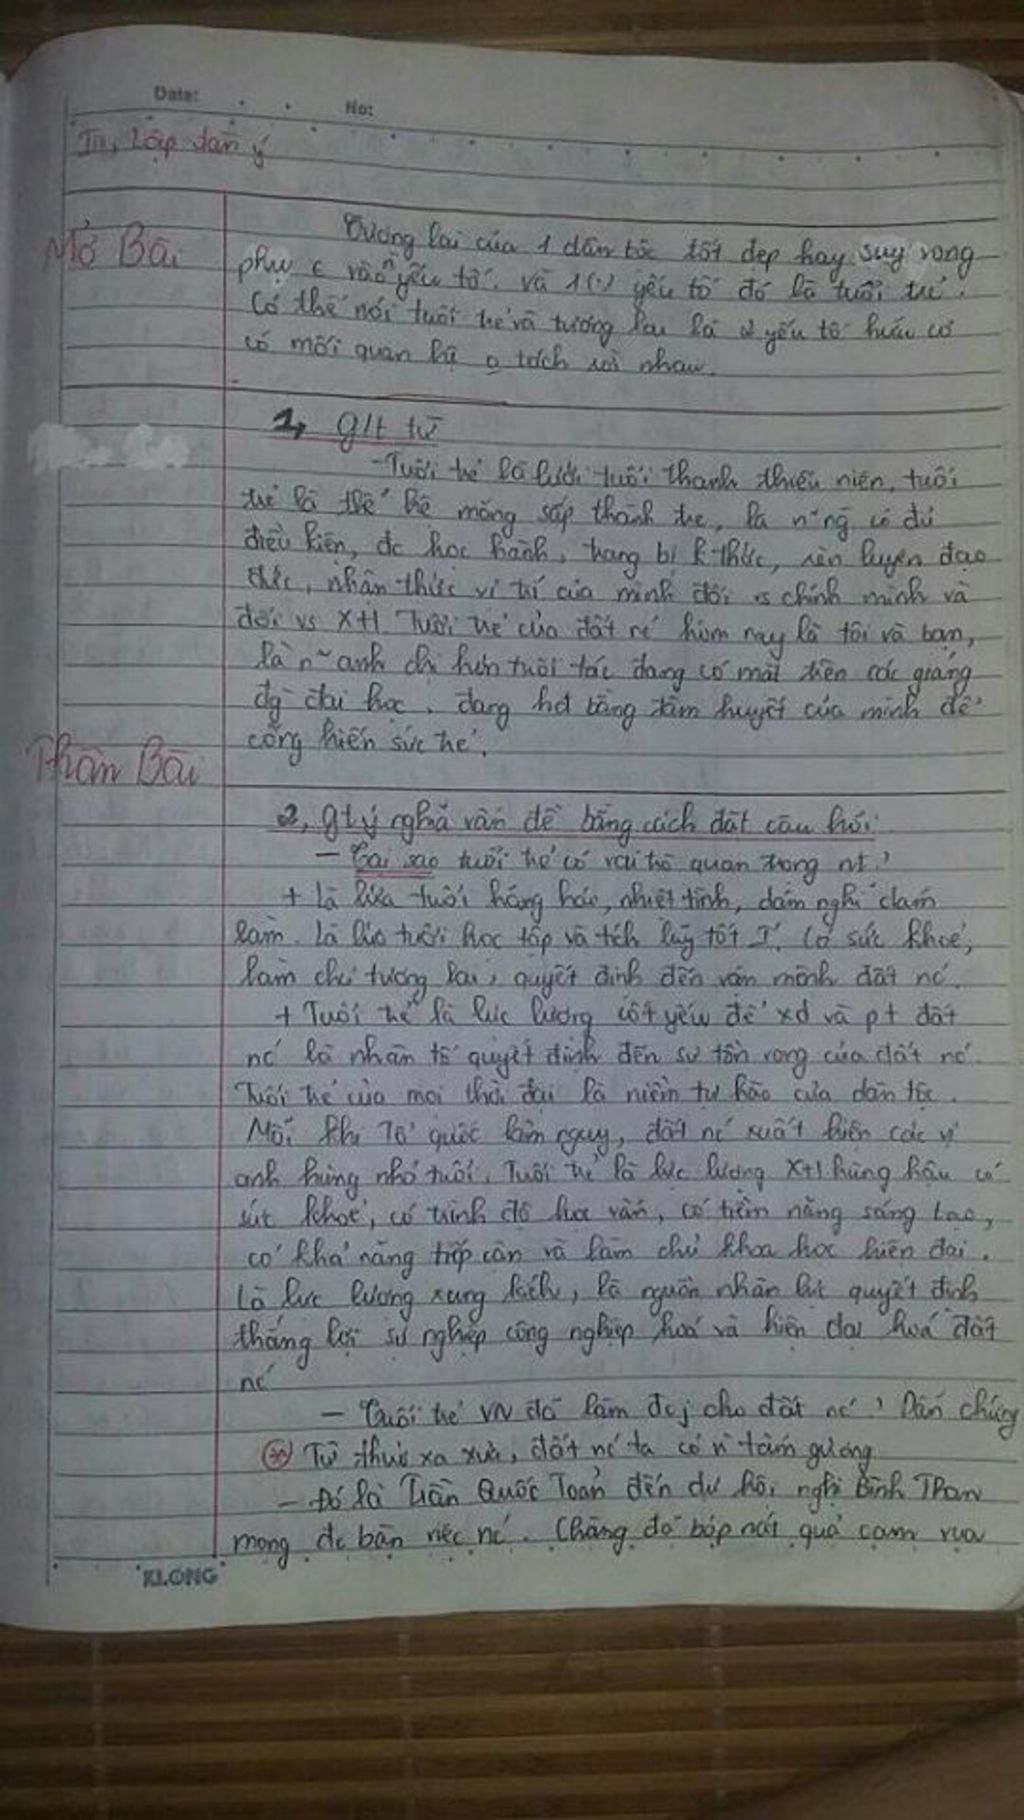 Date: No:
III, Lập dàn ý
Mở Bài
Tương lai của 1 dân tộc tốt đẹp hay suy vong
phụ t vào n yếu tố. và 1 (.) yếu tố đó là tuổi trẻ.
Có thể nói tuổi trẻ và tương lai là 2 yếu tố hữu cơ
có mối quan hệ o tách rời nhau.
1, g/t từ
- Tuổi trẻ là lứa tuổi thanh thiếu niên, tuổi
trẻ là thế hệ măng sắp thành tre, là n~ng có đủ
điều kiện, đc học hành, trang bị k thức, rèn luyện đạo
đức, nhận thức vị trí của mình đối vs chính mình và
đối vs x+h Tuổi trẻ của đất nc hôm nay là tôi và bạn,
là n~ anh chị hơn tuổi tác đang có mặt trên các giảng
đg đại học, đang hđ bằng tâm huyết của mình để
cống hiến sức trẻ.
Thân Bài
2, gt ý nghĩa vấn đề bằng cách đặt câu hỏi
- Tại sao tuổi trẻ có vai trò quan trọng nt?
+ là lứa tuổi hăng hái, nhiệt tình, dám nghĩ dám
làm. Là lứa tuổi học tập và tích lũy tốt I. Có sức khoẻ,
làm chủ tương lai, quyết định đến vận mệnh đất nc.
+ Tuổi trẻ là lực lượng cốt yếu để xd và pt đất
nc là nhân tố quyết định đến sự tồn vong của đất nc.
Tuổi trẻ của mọi thời đại là niềm tự hào của dân tộc.
Mỗi khi Tổ quốc lâm nguy, đất nc xuất hiện các vị
anh hùng nhỏ tuổi. Tuổi trẻ là lực lượng x+h hùng hậu có
sức khoẻ, có trình độ học vấn, có tiềm năng sáng tạo,
có khả năng tiếp cận và làm chủ khoa học hiện đại.
Là lực lượng xung kích, là nguồn nhân lực quyết định
thắng lợi sự nghiệp công nghiệp hoá và hiện đại hoá đất
nc
- Tuổi trẻ VN đã làm đcj cho đất nc? Dẫn chứng
Từ thuở xa xưa, đất nc ta có n~ tấm gương
- Đó là Trần Quốc Toản đến dự hội nghị Bình Than
mong đc bàn việc nc. Chàng đã bóp nát quả cam vua
KLONG